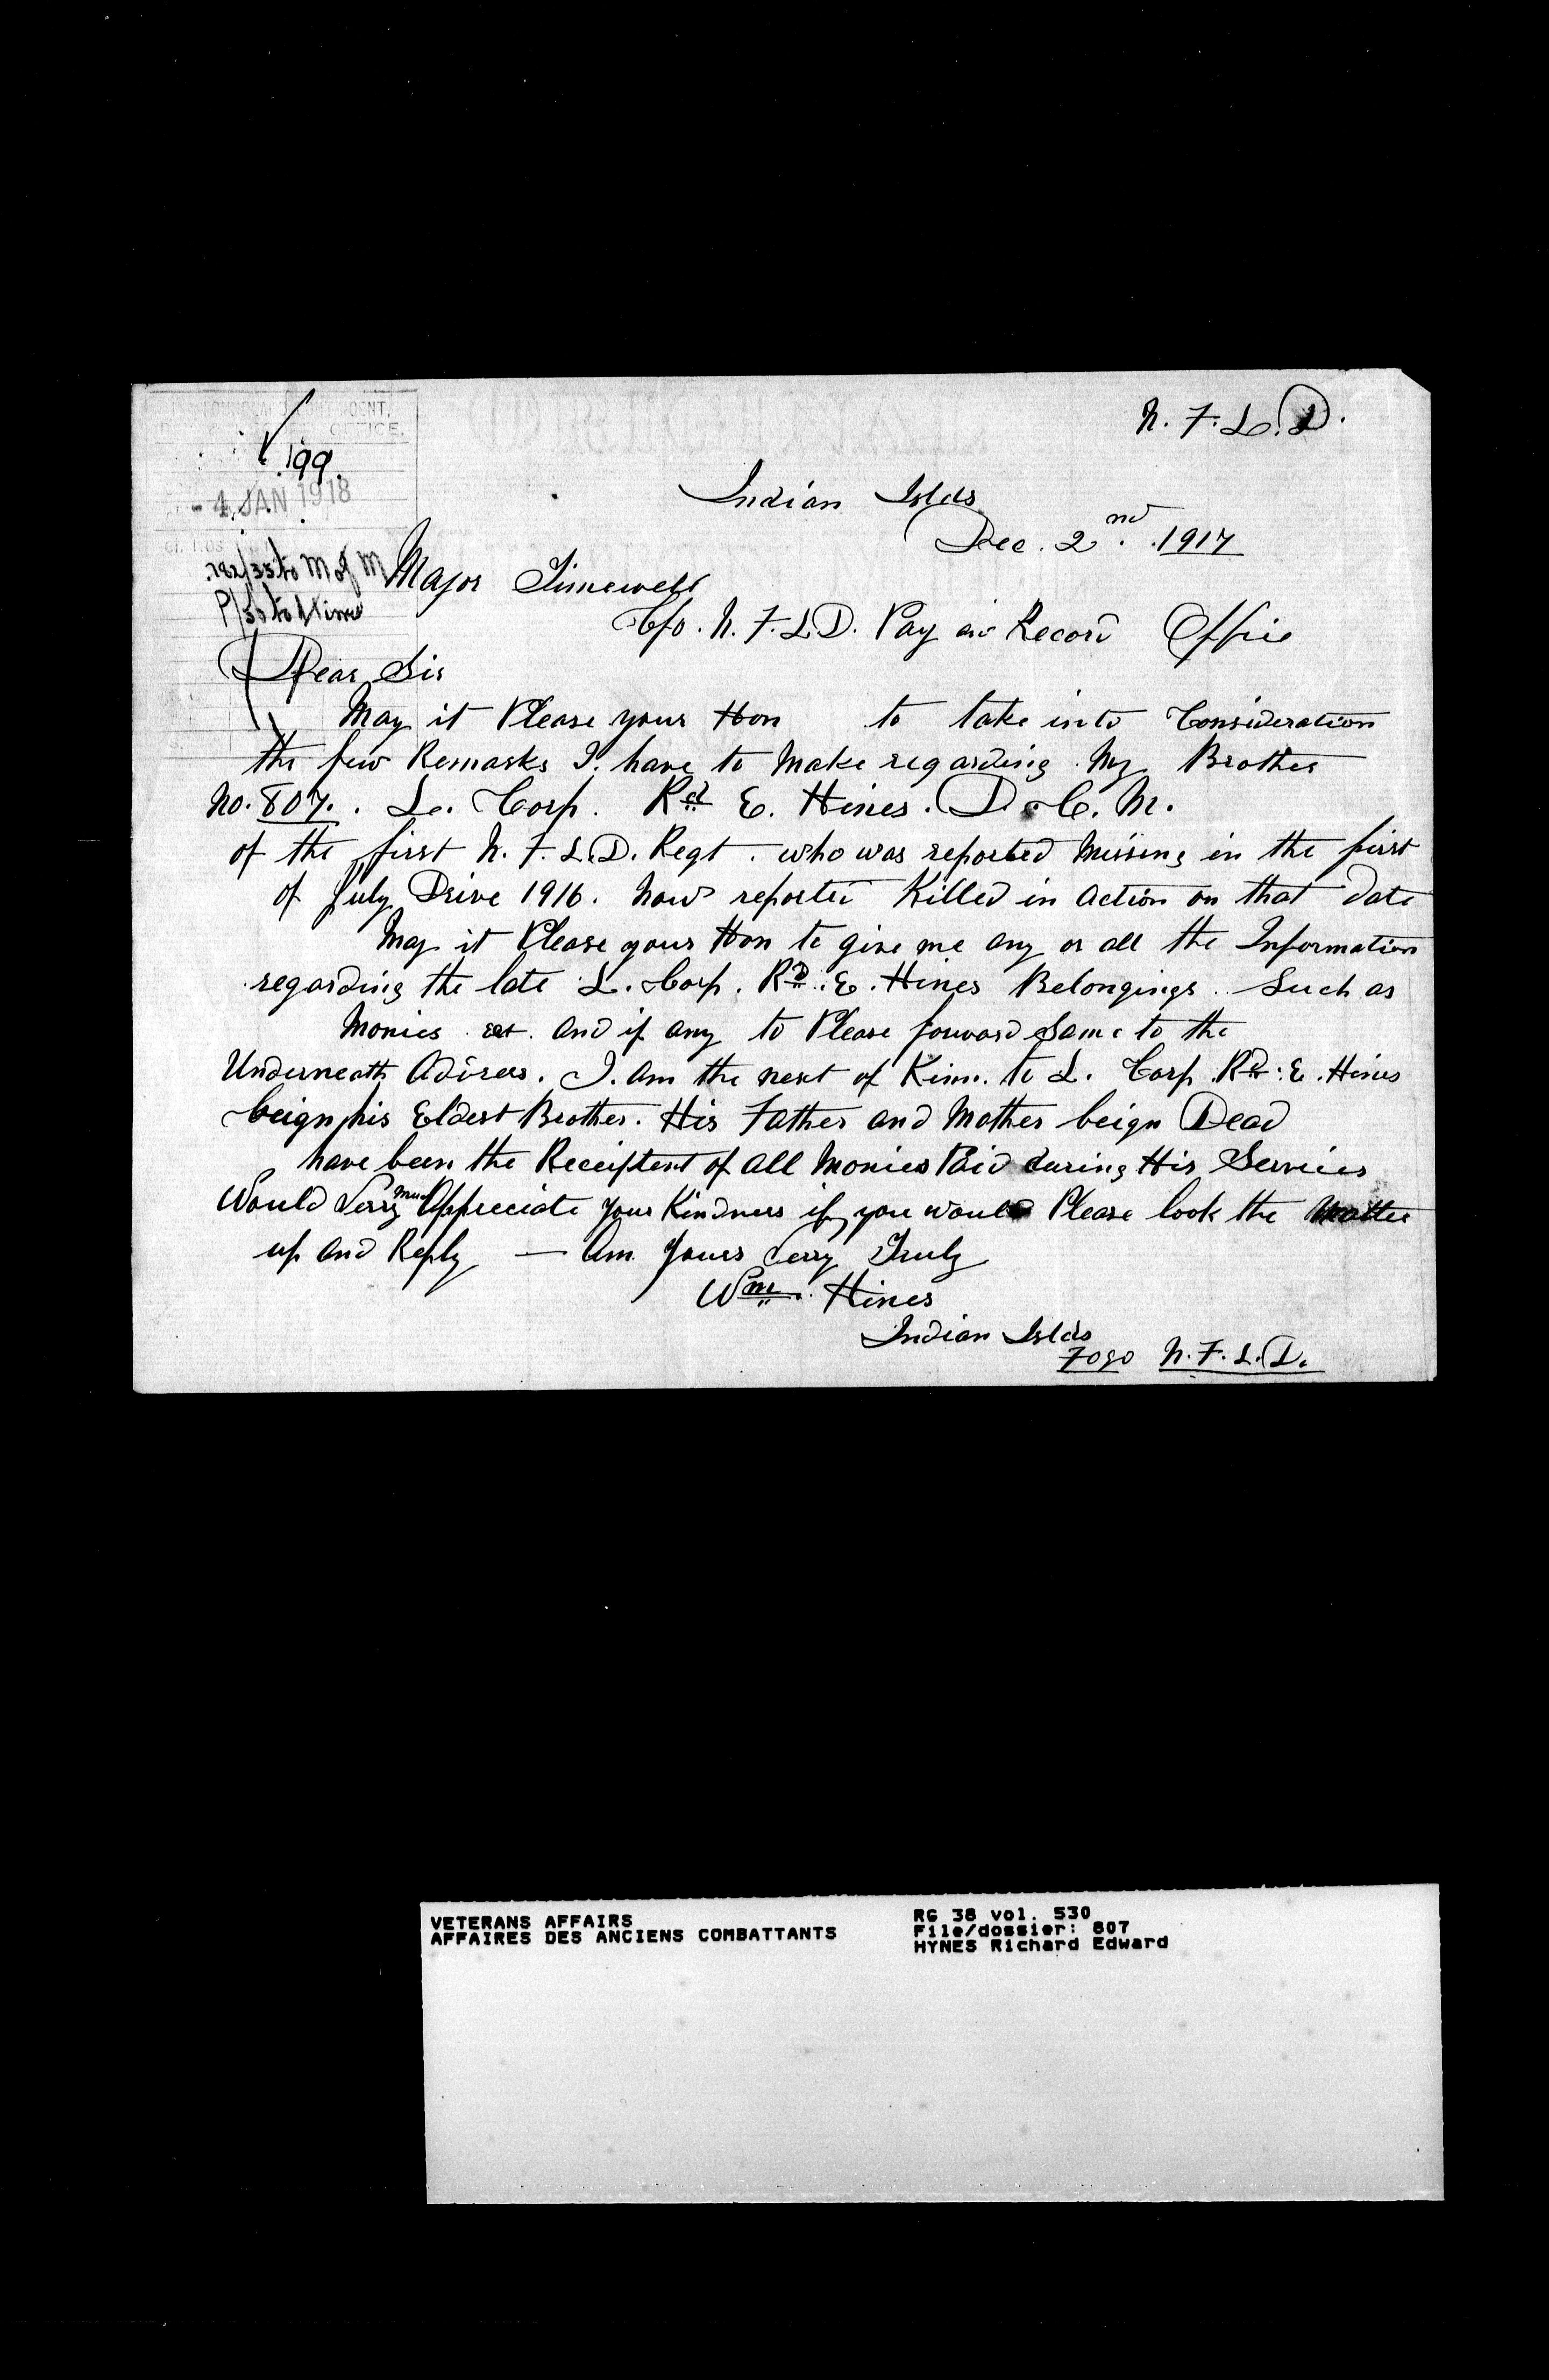 N.F.L.D.
199.
Indian Islds
- 4 JAN 1918
Dec. 2nd. 1917
to M of M
Major Timewell
C/o. N.F.L.D. Pay and Record Office
Dear Sir
May it Please your Hon to take into Consideration
the few Remarks I have to Make regarding My Brother
No. 807. Le. Corp. Rd E. Hines. D.C.M.
of the first N.F.L.D. Regt. who was reported Missing in the first
of July Drive 1916. Now reported Killed in Action on that Date
May it Please your Hon to give me any or all the Information
regarding the late L. Corp. Rd. E. Hines Belongings. Such as
Monies ect. And if any to Please forward Same to the
Underneath Adress. I. Am the next of Kinn. to L. Corp. Rd. E. Hines
beign his Eldest Brother. His Father and Mother beign Dead
have been the Receiptent of All Monies Paid during His Services
Would Verry Much Appreciate your Kindness if you would Please look the Matter
up And Reply — Am Yours Verry Truly
Wm. Hines
Indian Islds
Fogo N.F.L.D.
VETERANS AFFAIRS RG 38 vol. 530
AFFAIRES DES ANCIENS COMBATTANTS File/dossier: 807
HYNES Richard Edward